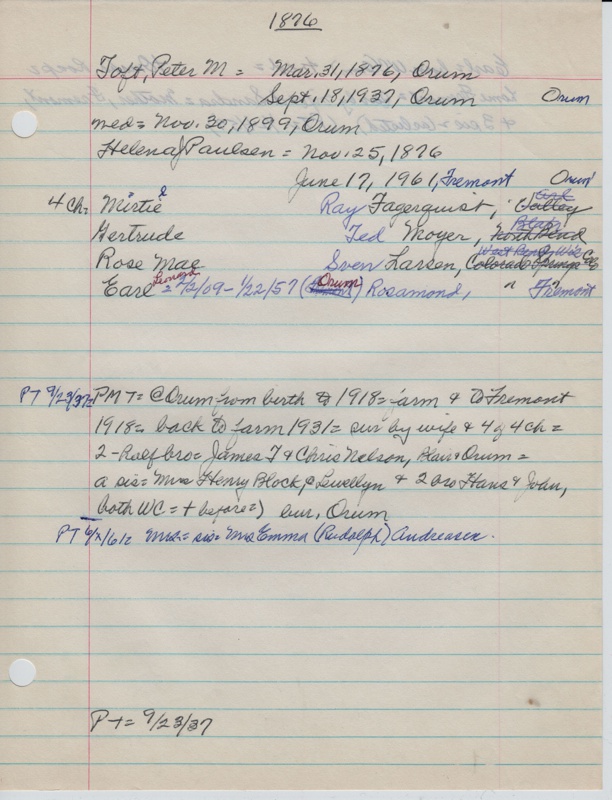 1876
Toft, Peter M = Mar, 31, 1876, Orum
Sept. 18, 1937, Orum Orum
med = Nov. 30, 1899, Orum
Helena J Paulsen = Nov. 25, 1876
June 17, 1961, Fremont Orum
4 Ch = Mirtie Ray Fagerquist, Valley
Gertrude Ted Moyer, Blair North Bend
Rose Mae Sven Larsen, Colorado Springs
Earl Leonard = 2/2/09 - 1/22/57 (Orum) Rosamond, " Fremont
PT 9/23/37 = PMT = @ Orum from birth to 1918 = farm & to Fremont
1918 = back to farm 1931 = sur by wife & 4 of 4 ch =
2 - bro = James T & Chris Nelson, Blair & Orum =
a sis = Mrs Henry Block, Lewellyn & 2 bro Hans & John,
both WC = + before =) bur, Orum
PT = sis = Mrs Emma (Rudolph) Andreasen.
PT = 9/23/37